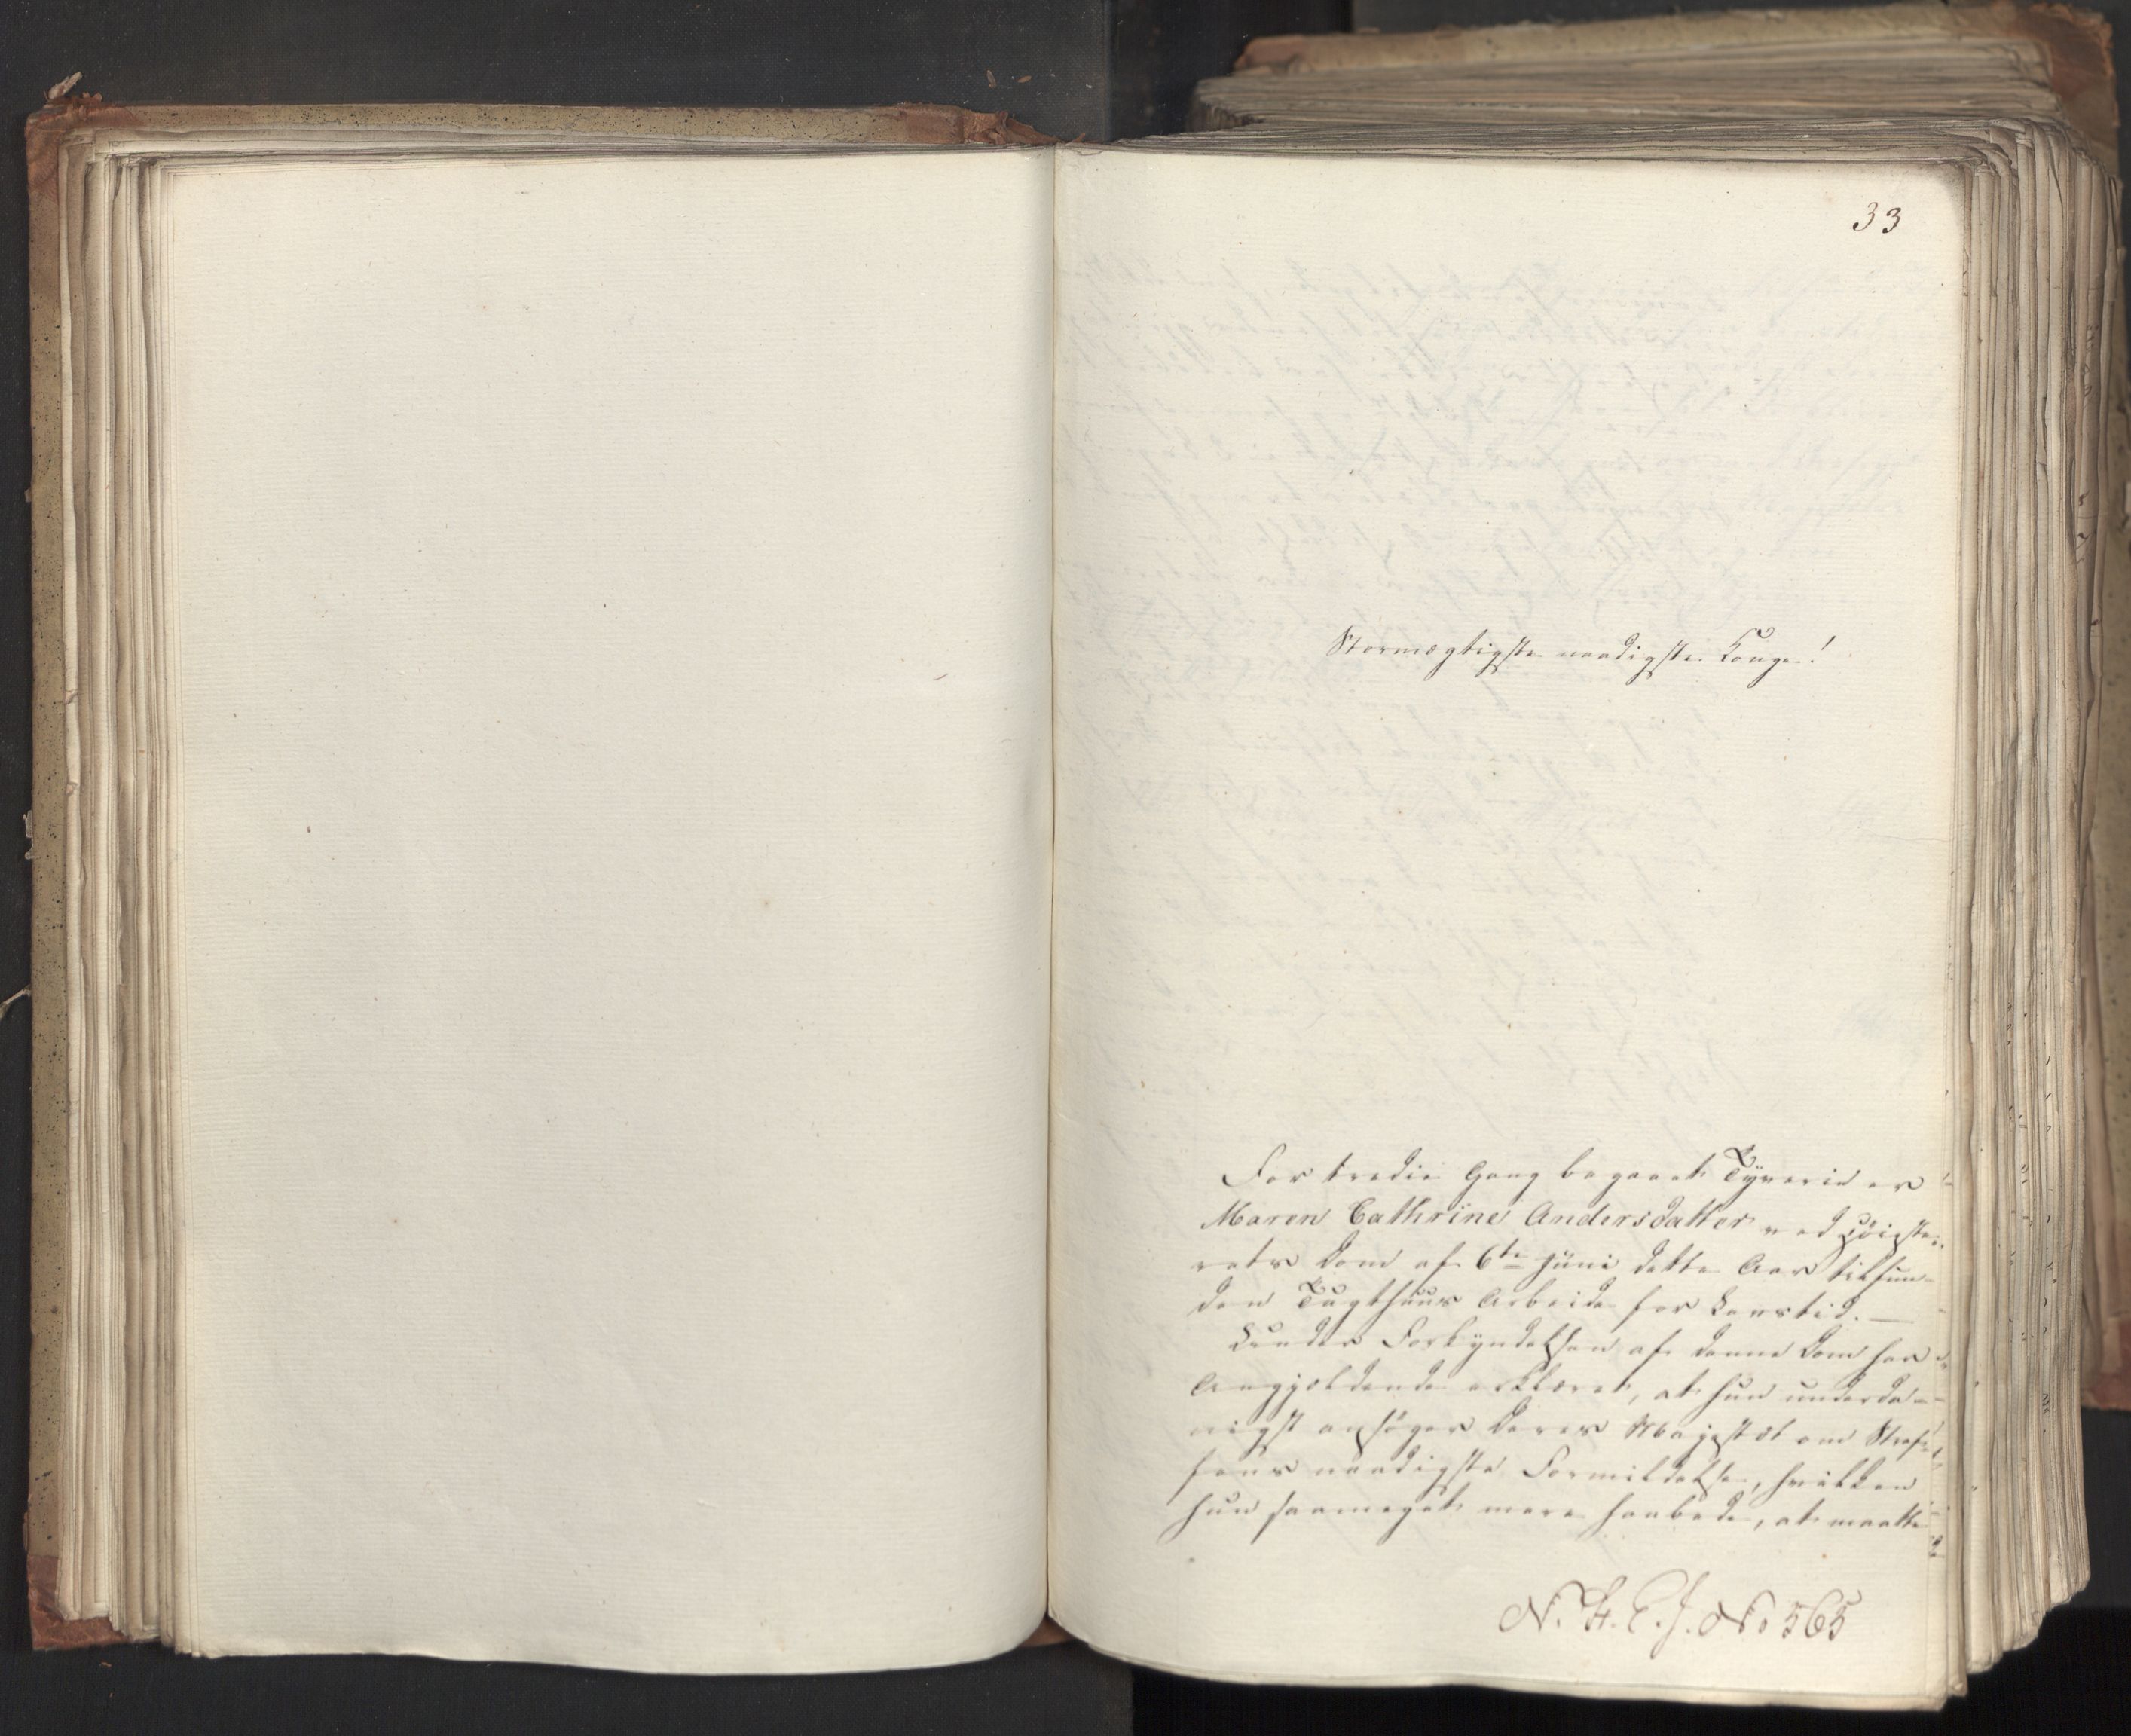 33
Stormægtigste naadigste Konge!
For tredie Gang begaaet Tyverie er
Maren Cathrine Andersdatter ved Høieste-
rets Dom af 6te Juni dette Aar tilfun-
den Tugthuus Arbeide for Livstid. —
Under Forkyndelsen af denne Dom har
Angjældende erklæret, at hun underda-
nigst ansøger Deres Majestæt om Straf-
fens naadigste Formildelse, hvilken
hun saameget mere haabede, at maatte
N. H. E. J. No 565